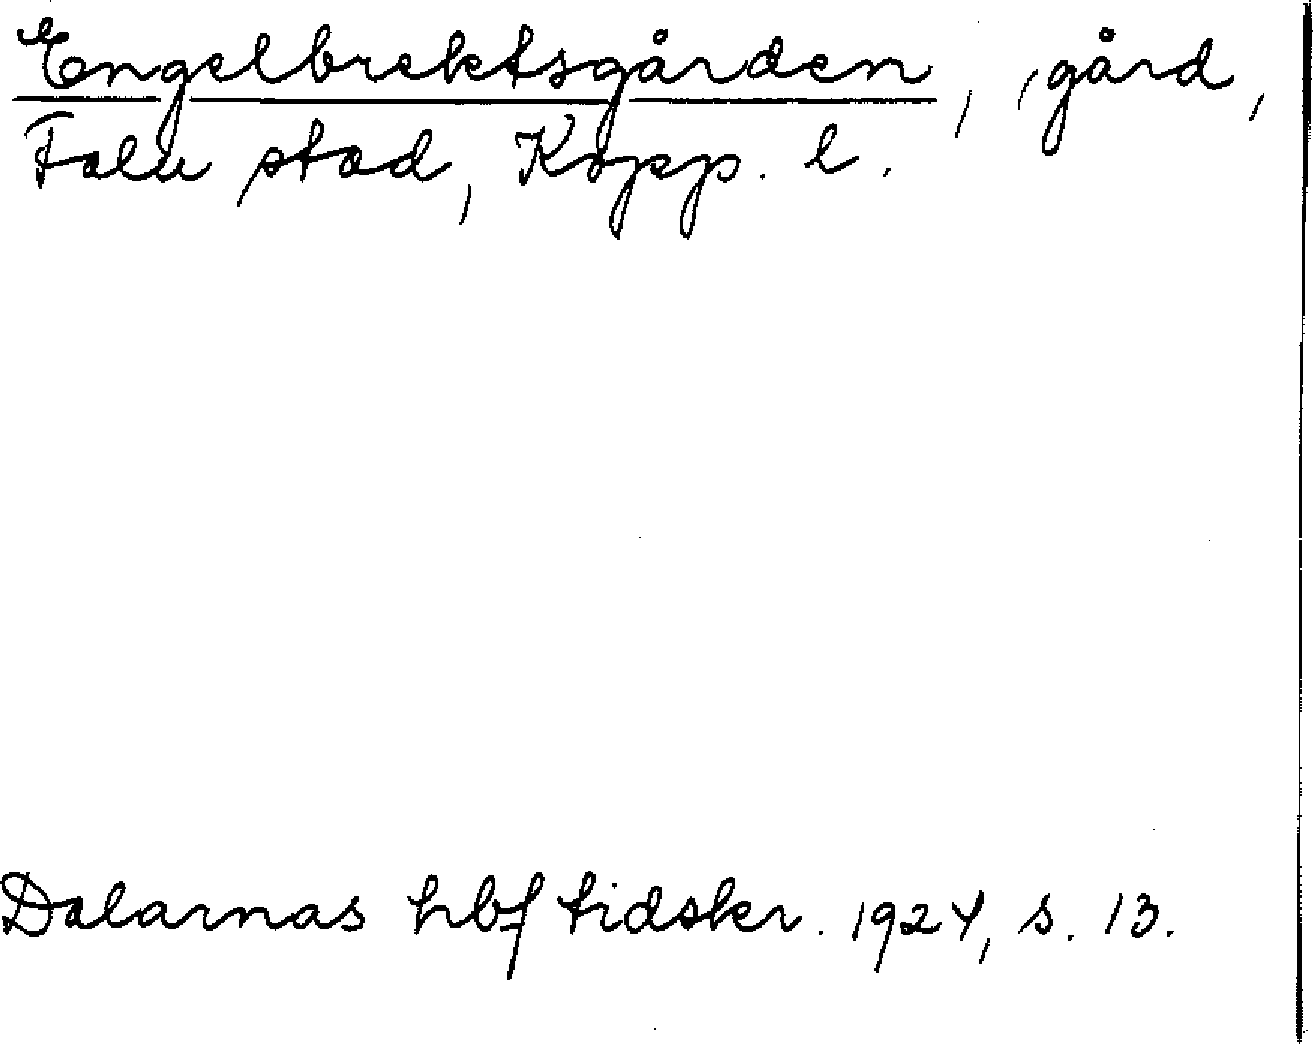 Engelbrektsgården, gård,
Falu stad, Kopp. l.
Dalarnas hbf tidskr. 1924, s. 13.